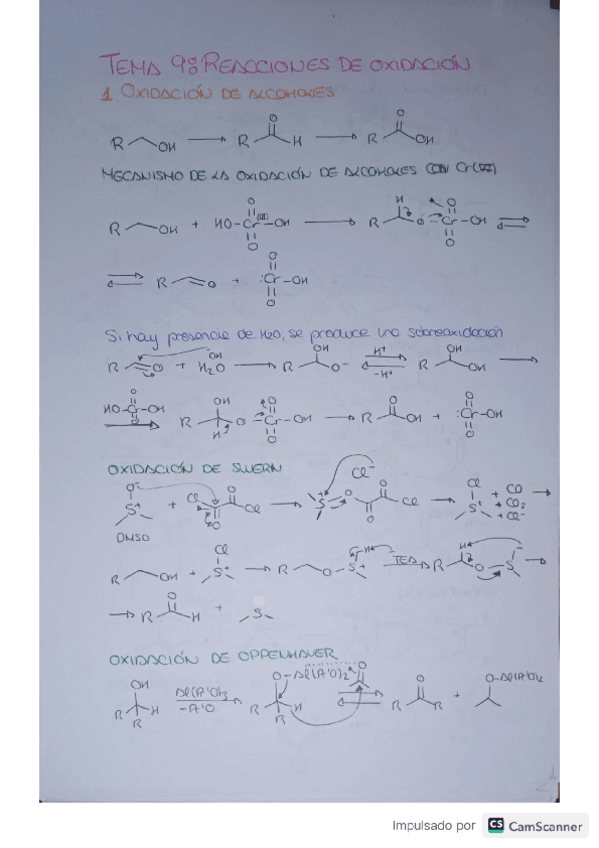 TEMA 9: REACCIONES DE OXIDACIÓN
1 OXIDACIÓN DE ALCOHOLES
R OH R O H R O OH
MECANISMO DE LA OXIDACIÓN DE ALCOHOLES CON Cr(VI)
R OH + HO-Cr-OH R H O-Cr-OH
R O + :Cr-OH
Si hay presencia de H2O, se produce una sobreoxidación
R O + H2O R OH O- H+ -H+ R OH OH
HO-Cr-OH R OH H O-Cr-OH R O OH + :Cr-OH
OXIDACIÓN DE SWERN
O- S+ + Cl O O Cl S+ O O O Cl Cl- Cl S+ + CO + CO2 + Cl-
DMSO
R OH + Cl S+ R O-S+ H TEA R H O-S+
R O H + S
OXIDACIÓN DE OPPENHAUER
OH R H R Al(A'O)3 -A'O O-Al(A'O)2 R H R O R O R + O-Al(A'O)2
Impulsado por CS CamScanner